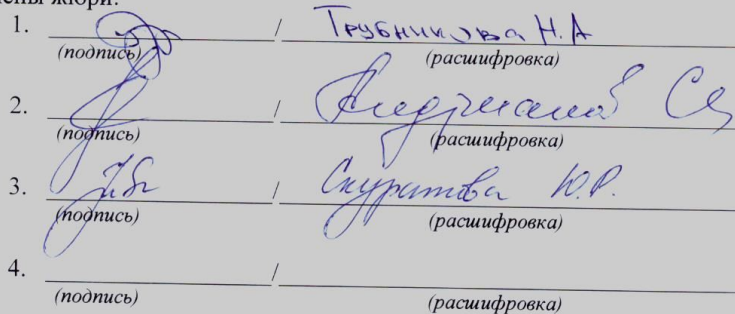 лены жюри:
1. / Трубникова Н.А
(подпись) (расшифровка)
2. /
(подпись) (расшифровка)
3. / Скуратова Ю.Р.
(подпись) (расшифровка)
4. /
(подпись) (расшифровка)